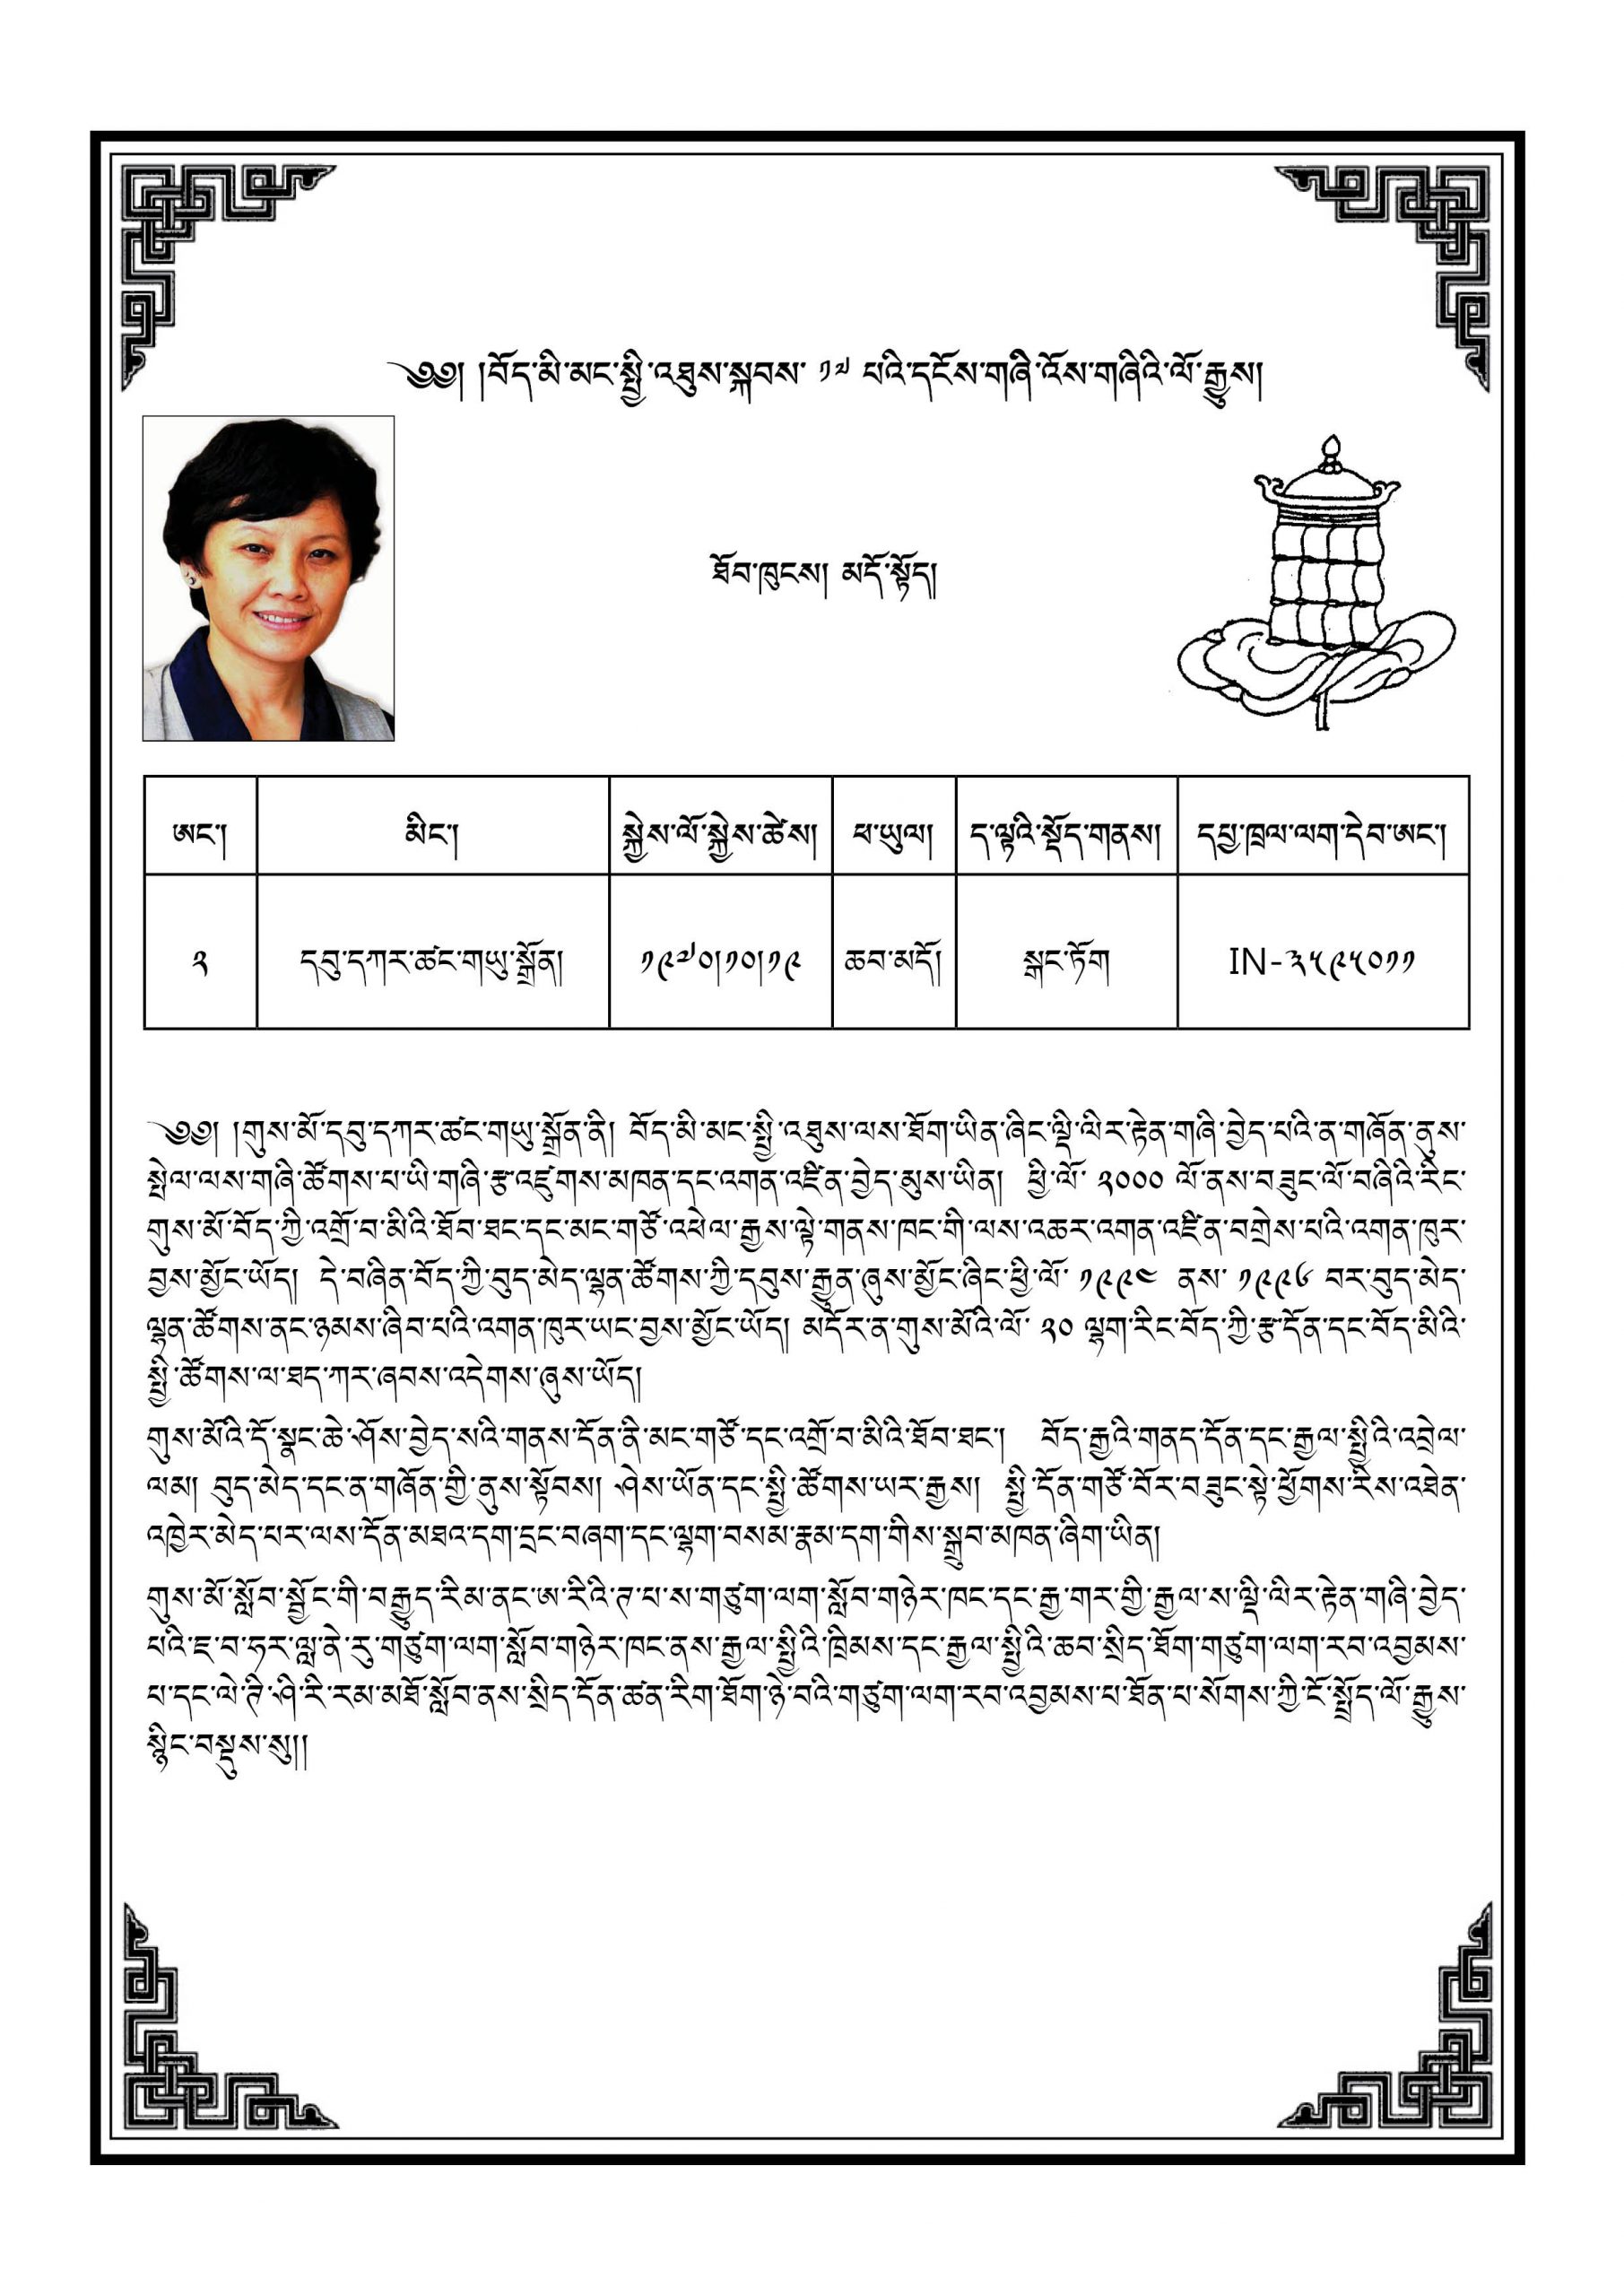 ༄༅། །བོད་མི་མང་སྤྱི་འཐུས་སྐབས་ ༡༧ པའི་དངོས་གཞི་འོས་གཞིའི་ལོ་རྒྱུས།
ཐོབ་ཁུངས། མདོ་སྟོད།
ཨང་། མིང་། སྐྱེས་ལོ་སྐྱེས་ཚེས། ཕ་ཡུལ། ད་ལྟའི་སྡོད་གནས། དཔྱ་ཁྲལ་ལག་དེབ་ཨང་།
༢ དབུ་དཀར་ཚང་གཡུ་སྒྲོན། ༡༩༧༠།༡༠།༡༩ ཆབ་མདོ། སྒང་ཏོག IN-༣༥༩༥༠༡༡
༄༅། །གུས་མོ་དབུ་དཀར་ཚང་གཡུ་སྒྲོན་ནི། བོད་མི་མང་སྤྱི་འཐུས་ལས་ཐོག་ཡིན་ཞིང་ལྡི་ལིར་རྟེན་གཞི་བྱེད་པའི་ན་གཞོན་ནུས་
སྤེལ་ལས་གཞི་ཚོགས་པ་ཡི་གཞི་རྩ་འཛུགས་མཁན་དང་འགན་འཛིན་བྱེད་མུས་ཡིན། ཕྱི་ལོ་ ༢༠༠༠ ལོ་ནས་བཟུང་ལོ་བཞིའི་རིང་
གུས་མོ་བོད་ཀྱི་འགྲོ་བ་མིའི་ཐོབ་ཐང་དང་མང་གཙོ་འཕེལ་རྒྱས་ལྟེ་གནས་ཁང་གི་ལས་འཆར་འགན་འཛིན་བགྲེས་པའི་འགན་ཁུར་
བྱས་མྱོང་ཡོད། དེ་བཞིན་བོད་ཀྱི་བུད་མེད་ལྷན་ཚོགས་ཀྱི་དབུས་རྒྱུན་ཞུས་མྱོང་ཞིང་ཕྱི་ལོ་ ༡༩༩༤ ནས་ ༡༩༩༦ བར་བུད་མེད་
ལྷན་ཚོགས་ནང་ཉམས་ཞིབ་པའི་འགན་ཁུར་ཡང་བྱས་མྱོང་ཡོད། མདོར་ན་གུས་མོའི་ལོ་ ༢༠ ལྷག་རིང་བོད་ཀྱི་རྩ་དོན་དང་བོད་མིའི་
སྤྱི་ཚོགས་ལ་ཐད་ཀར་ཞབས་འདེགས་ཞུས་ཡོད།
གུས་མོའི་དོ་སྣང་ཆེ་ཤོས་བྱེད་སའི་གནས་དོན་ནི་མང་གཙོ་དང་འགྲོ་བ་མིའི་ཐོབ་ཐང་། བོད་རྒྱའི་གནད་དོན་དང་རྒྱལ་སྤྱིའི་འབྲེལ་
ལམ། བུད་མེད་དང་ན་གཞོན་གྱི་ནུས་སྟོབས། ཤེས་ཡོན་དང་སྤྱི་ཚོགས་ཡར་རྒྱས། སྤྱི་དོན་གཙོ་བོར་བཟུང་སྟེ་ཕྱོགས་རིས་འཐེན་
འཁྱེར་མེད་པར་ལས་དོན་མཐའ་དག་དྲང་བཞག་དང་ལྷག་བསམ་རྣམ་དག་གིས་སྒྲུབ་མཁན་ཞིག་ཡིན།
གུས་མོ་སློབ་སྦྱོང་གི་བརྒྱུད་རིམ་ནང་ཨ་རིའི་ཊ་པ་ས་གཙུག་ལག་སློབ་གཉེར་ཁང་དང་རྒྱ་གར་གྱི་རྒྱལ་ས་ལྡི་ལིར་རྟེན་གཞི་བྱེད་
པའི་ཇ་བ་ཧར་ལྷ་ནེ་རུ་གཙུག་ལག་སློབ་གཉེར་ཁང་ནས་རྒྱལ་སྤྱིའི་ཁྲིམས་དང་རྒྱལ་སྤྱིའི་ཆབ་སྲིད་ཐོག་གཙུག་ལག་རབ་འབྱམས་
པ་དང་ལེ་ཌི་ཤི་རི་རམ་མཐོ་སློབ་ནས་སྲིད་དོན་ཚན་རིག་ཐོག་ཉེ་བའི་གཙུག་ལག་རབ་འབྱམས་པ་ཐོན་པ་སོགས་ཀྱི་ངོ་སྤྲོད་ལོ་རྒྱུས་
སྙིང་བསྡུས་སུ།།